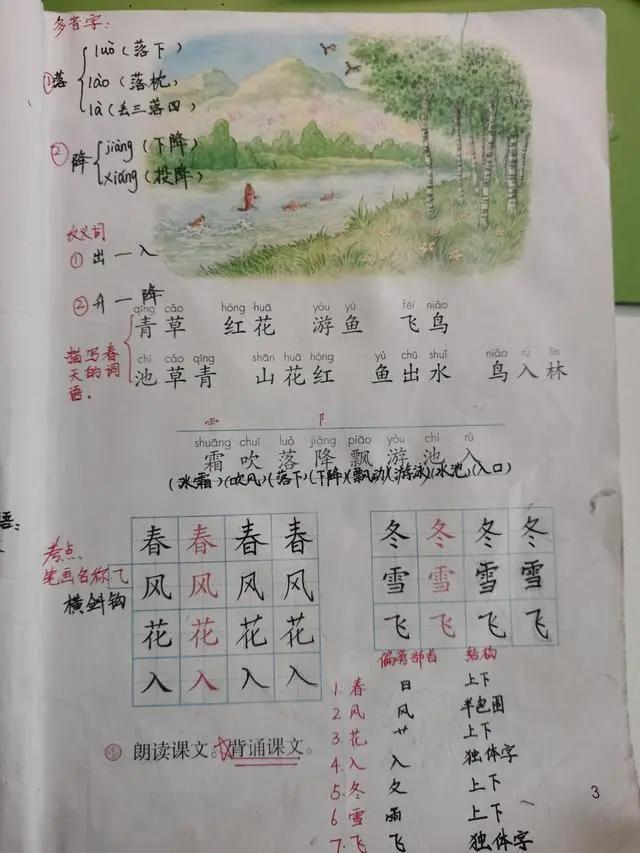 多音字:
①落 luò(落下)
lào(落枕)
là(丢三落四)
②降 jiàng(下降)
xiáng(投降)
反义词
①出一入
②升一降
qīng cǎo hóng huā yóu yú fēi niǎo
青草 红花 游鱼 飞鸟
描写春天的词语。
chí cǎo qīng shān huā hóng yú chū shuǐ niǎo rù lín
池草青 山花红 鱼出水 鸟入林
shuāng chuī luò jiàng piāo yóu chí rù
霜吹落降飘游池入
(冰霜)(吹风)(落下)(下降)(飘动)(游泳)(水池)(入口)
考点
笔画名称⺄
横斜钩
春春春春
风风风风
花花花花
入入入入
冬冬冬冬
雪雪雪雪
飞飞飞飞
偏旁部首 结构
1.春 日 上下
2.风 风 半包围
3.花 艹 上下
4.入 入 独体字
5.冬 夂 上下
6 雪 雨 上下
7.飞 飞 独体字
朗读课文。背诵课文。
3